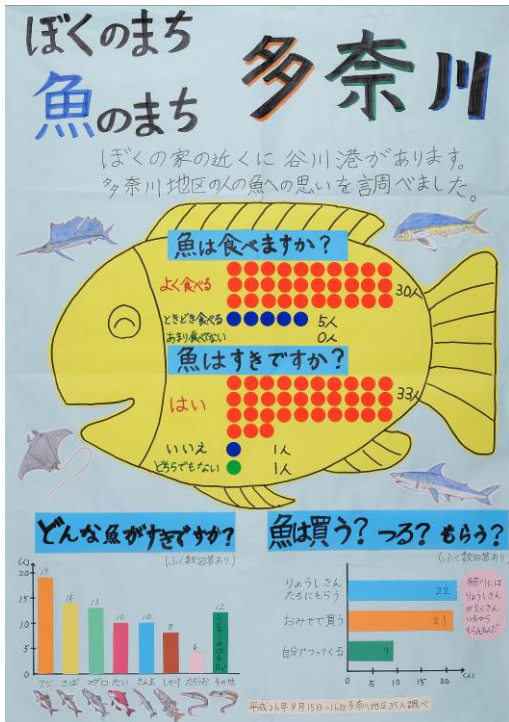 ぼくのまち
魚のまち
多奈川
ぼくの家の近くに谷川港があります。
多奈川地区の人の魚への思いを調べました。
魚は食べますか?
よく食べる 30人
ときどき食べる 5人
あまり食べない 0人
魚はすきですか?
はい 33人
いいえ 1人
どちらでもない 1人
どんな魚がすきですか?
(ふく数回答あり)
(人)
20
15
10
5
0
19 14 13 10 10 8 4 12
さば マグロ たい さんま しゃけ たちうお その他
魚は買う? つる? もらう?
(ふく数回答あり)
りょうしさん
たちにもらう 22
おみせで買う 21
自分でつってくる 9
0 5 10 15 20 (人)
多奈川には
りょうしさん
がたくさん
いるから
もらえるんだ
平成26年8月15日~16日多奈川地区35人調べ